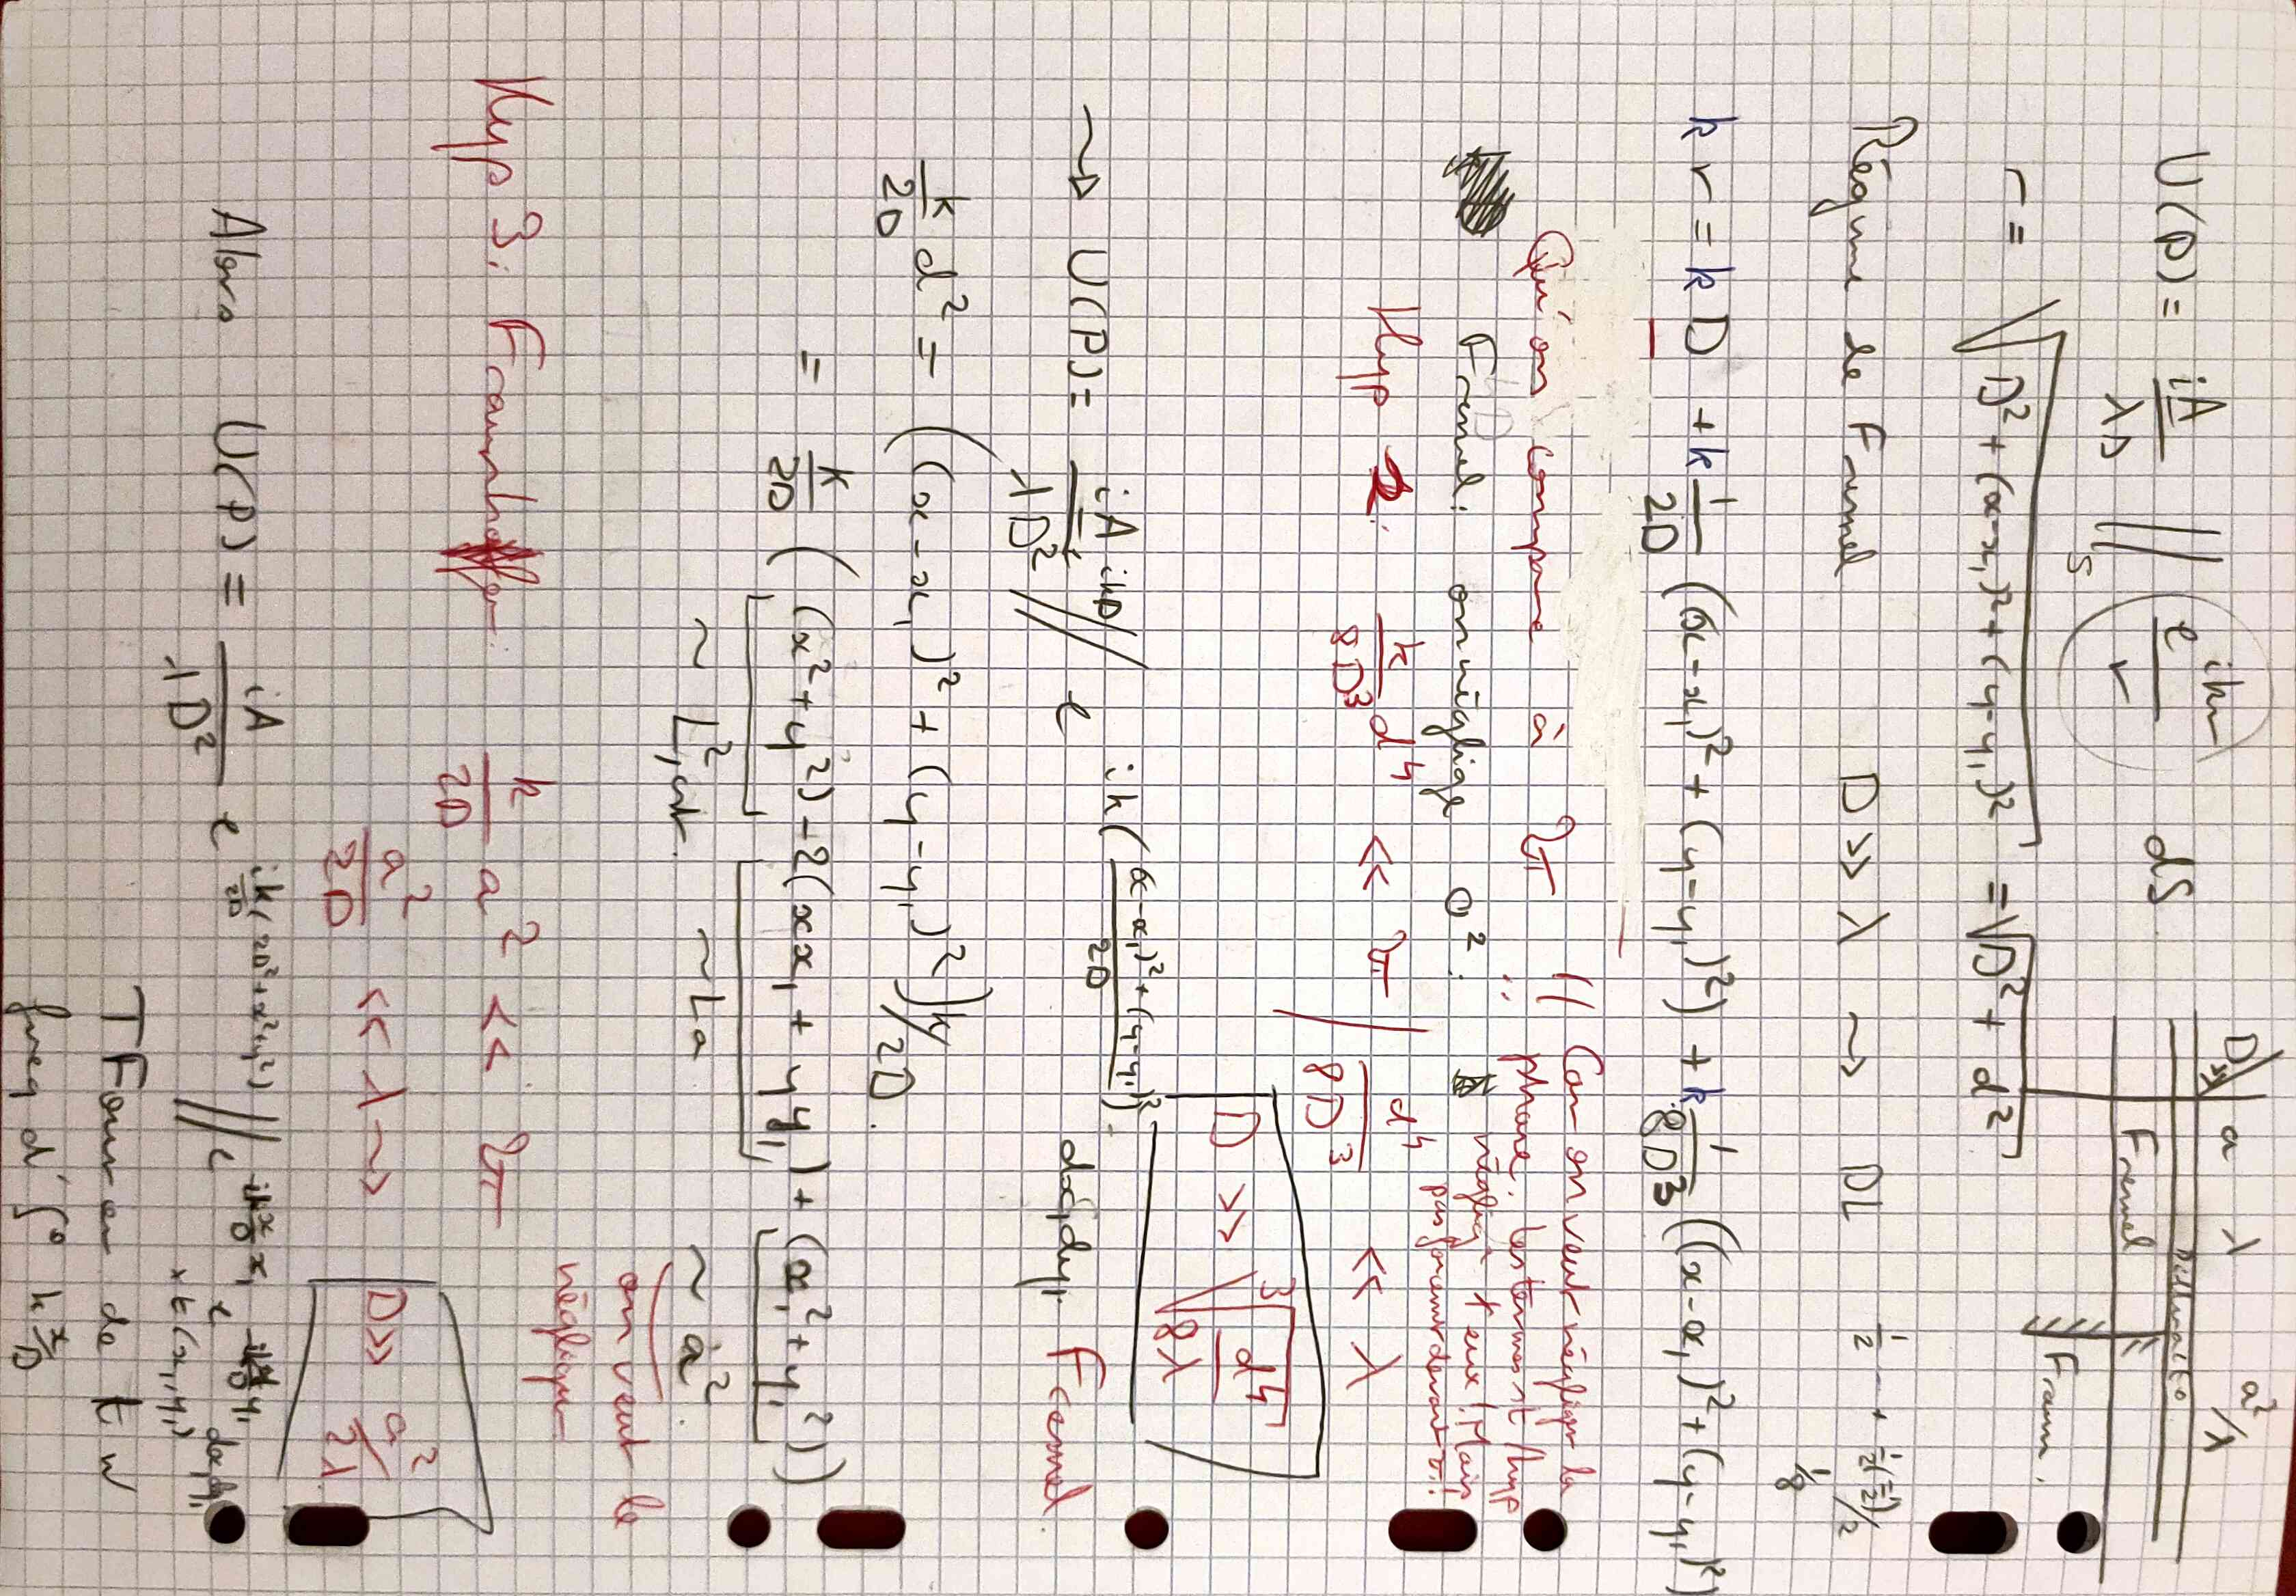 U(P) = iA/λD ∬_S e^{ikr}/r dS
D ≫ | a λ a²/λ
Fresnel | Fraun.
r = √(D² + (x-x₁)² + (y-y₁)²) = √(D² + d²)
Régime de Fresnel D ≫ λ ⇝ DL ½ + ½(-½)/2
1/8
kr = kD + k 1/2D ((x-x₁)² + (y-y₁)²) + k 1/8D³ ((x-x₁)² + (y-y₁)²)
Qu'on compare à 2π // Car on veut négliger la
phase. les termes st / hyp
Fresnel: on néglige O². négligé † eux! Mais
pas forcément devant
Hyp 2: k/8D³ d⁴ ≪ 2π / d⁴/8D³ ≪ λ
D ≫ ³√(d⁴/8λ)
⇝ U(P) = iA/λD² e^{ikD} ∬ e^{ik((x-x₁)²+(y-y₁)²/2D)} dx₁dy₁. Fresnel
k/2D d² = ((x-x₁)² + (y-y₁)²)k/2D.
= k/2D ((x²+y²) - 2(xx₁ + yy₁) + (x₁² + y₁²))
~ L², cst. ~ La ~ a².
on veut le
négliger
Hyp 3: Fraunhoffer. k/2D a² ≪ 2π
a²/2D ≪ λ ⇝ D ≫ a²/2λ
Alors U(P) = iA/λD² e^{ik/2D(2D²+x²+y²)} ∬ e^{-ikx/D x₁} e^{-iky/D y₁} dx₁dy₁
× t(x₁,y₁)
TFourier de t w
freq d' k x/D